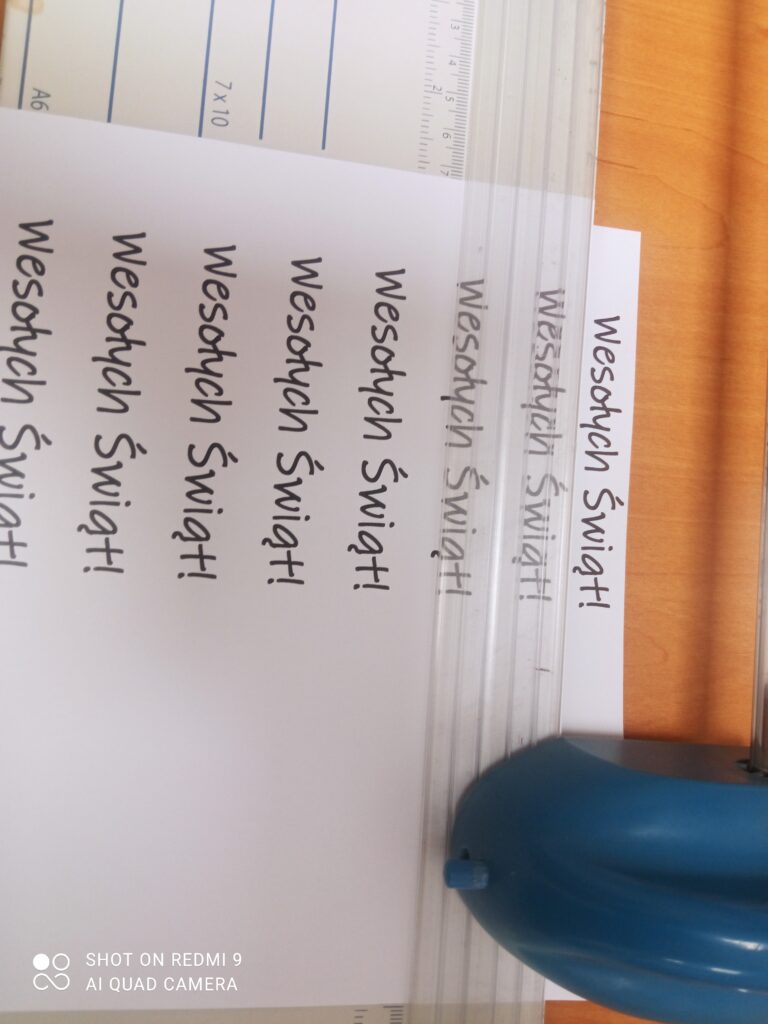 Wesołych Świąt!
Wesołych Świąt!
Wesołych Świąt!
Wesołych Świąt!
Wesołych Świąt!
Wesołych Świąt!
Wesołych Świąt!
Wesołych Świąt!
7 x 10
A6
3 4 5 6 7
2
SHOT ON REDMI 9
AI QUAD CAMERA